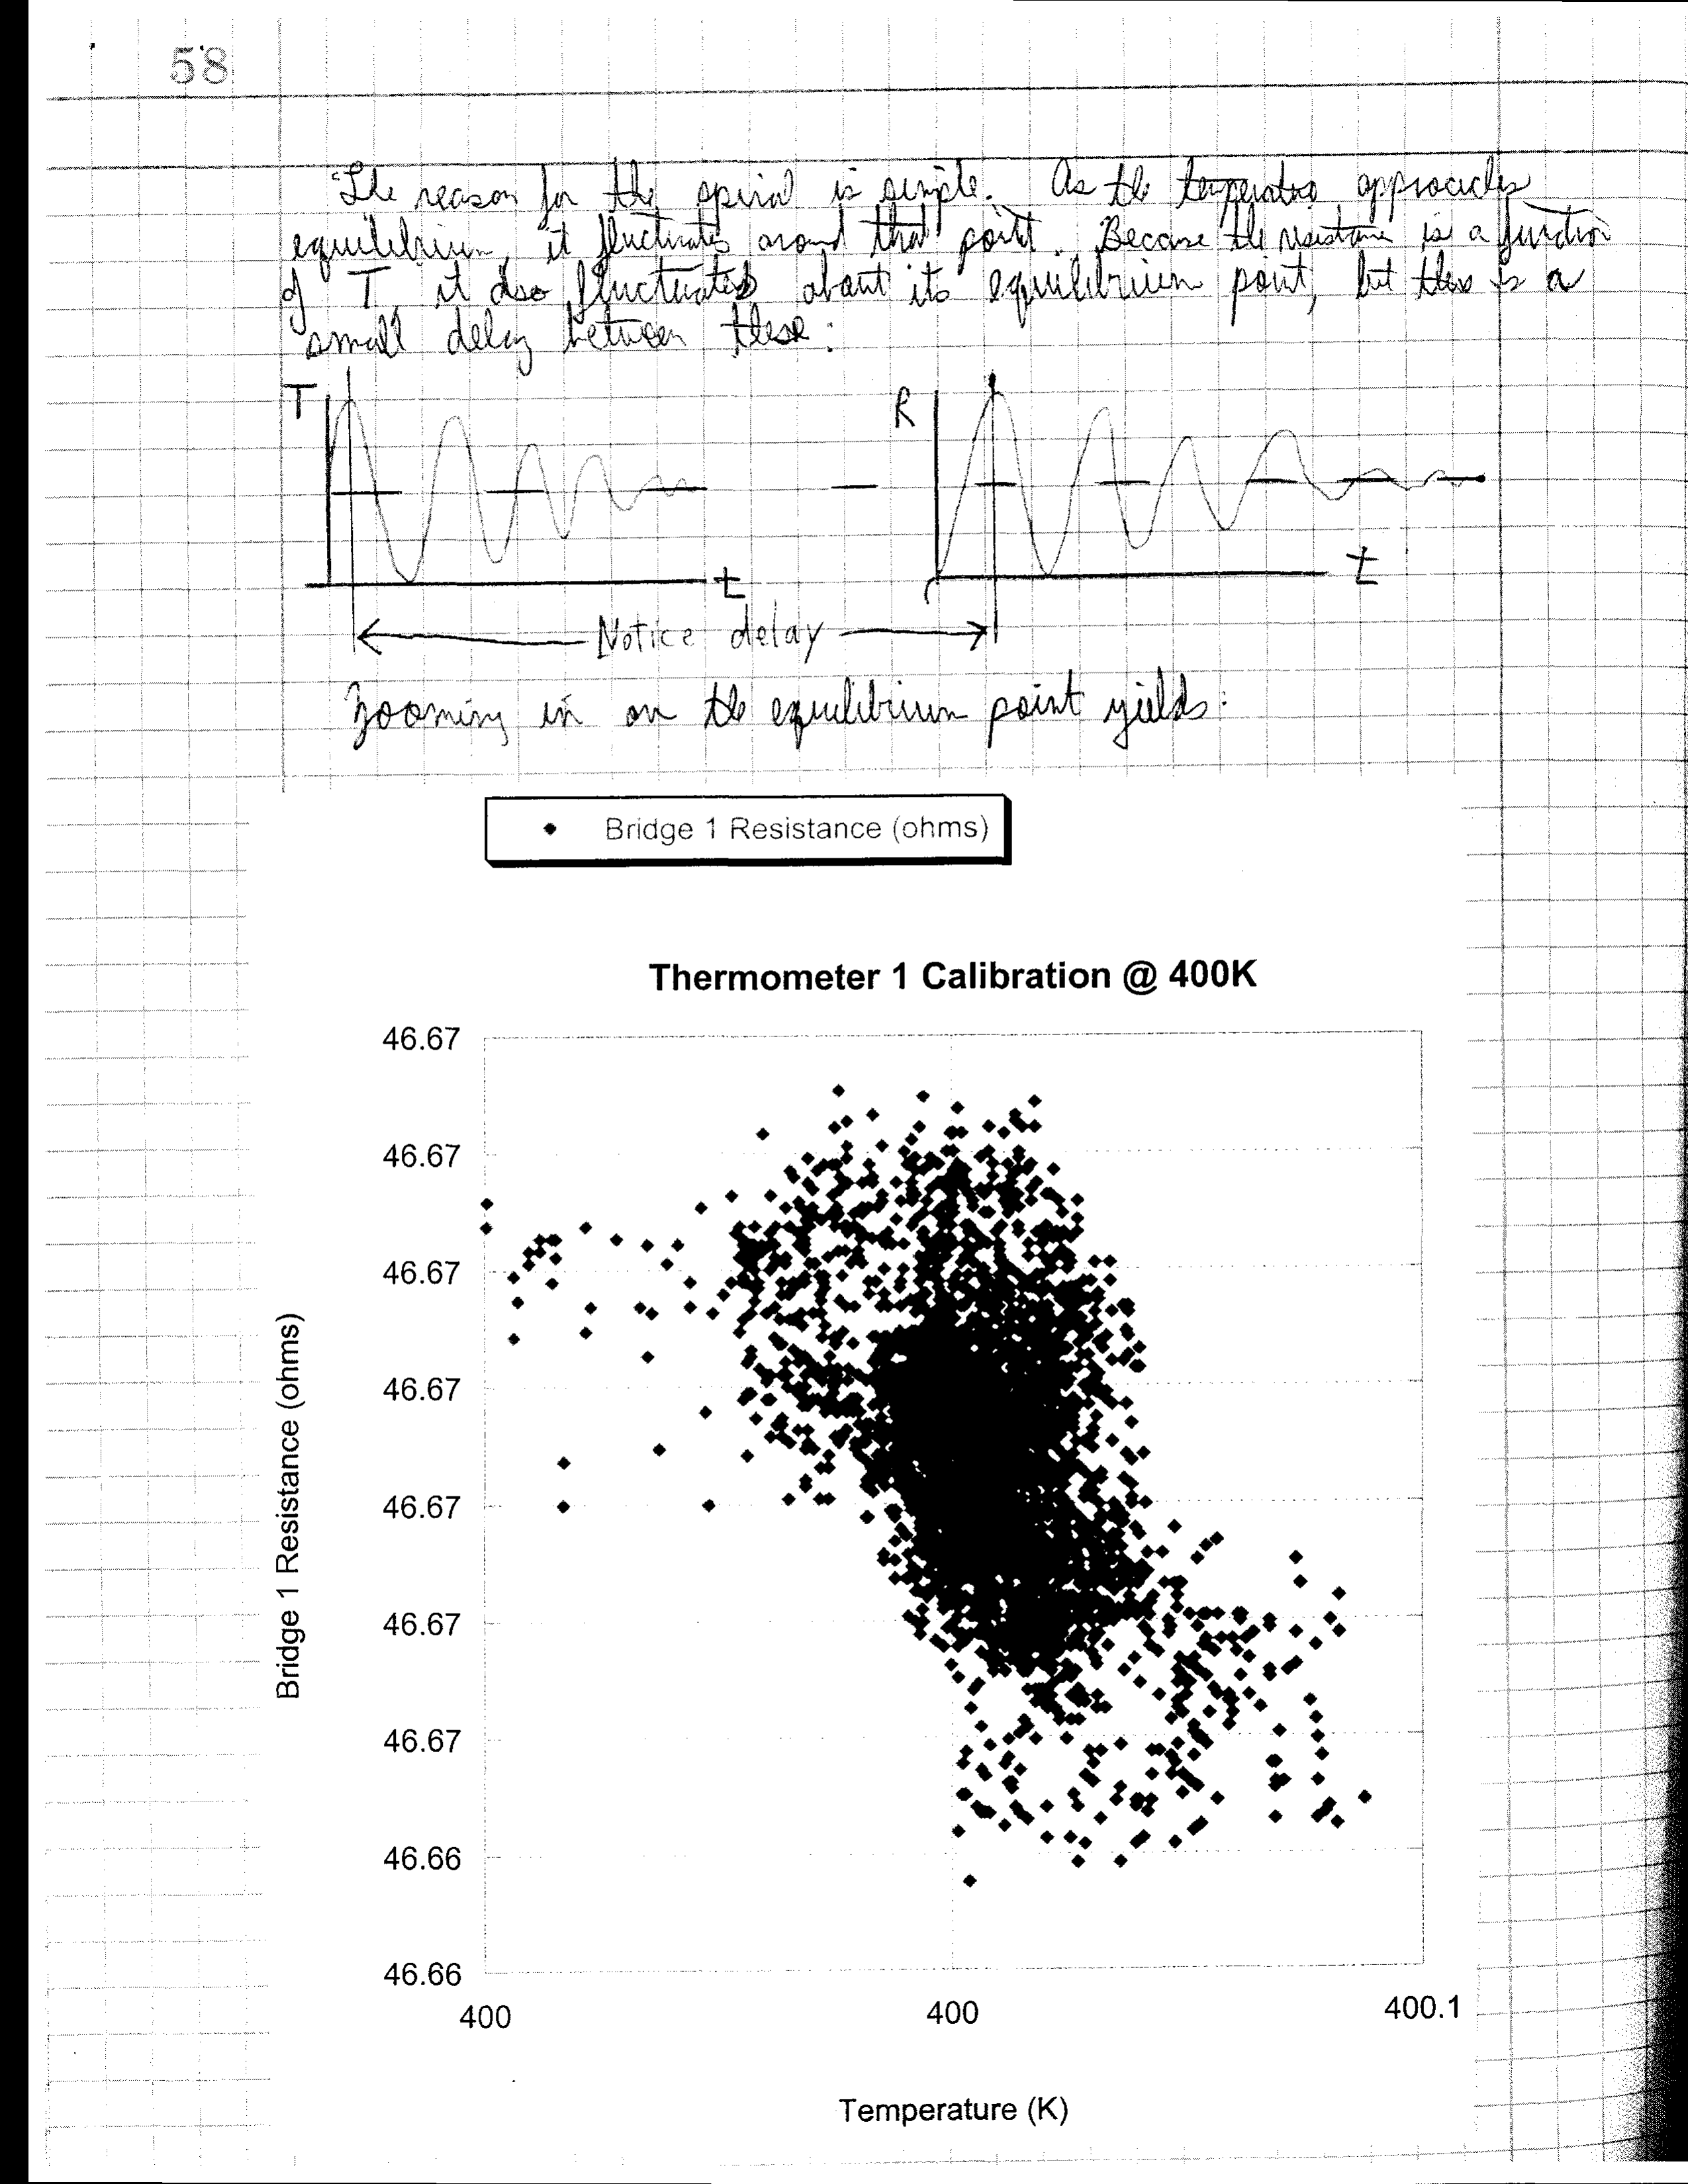 58
The reason for the spiral is simple. As the temperature approaches
equilibrium, it fluctuates around that point. Because the resistance is a function
of T, it also fluctuates about its equilibrium point, but there is a
small delay between these:
T R
t t
Notice delay
Zooming in on the equilibrium point yields:
Bridge 1 Resistance (ohms)
Thermometer 1 Calibration @ 400K
46.67
46.67
46.67
46.67
46.67
46.67
46.67
46.66
46.66
Bridge 1 Resistance (ohms)
400 400 400.1
Temperature (K)